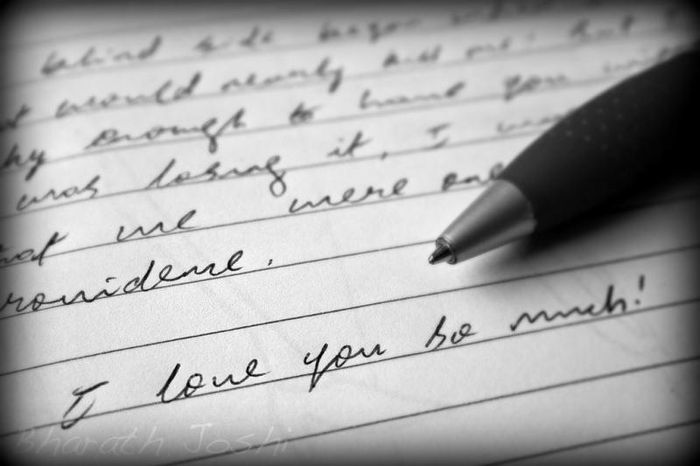 behind
would nearly me: that
enough to have you
was losing it, I was
that we were one
providence.
I love you so much!
Bharath Joshi